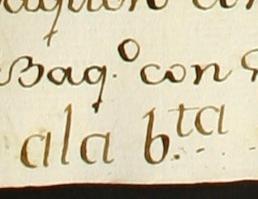 Baq.º con
ala b.ta